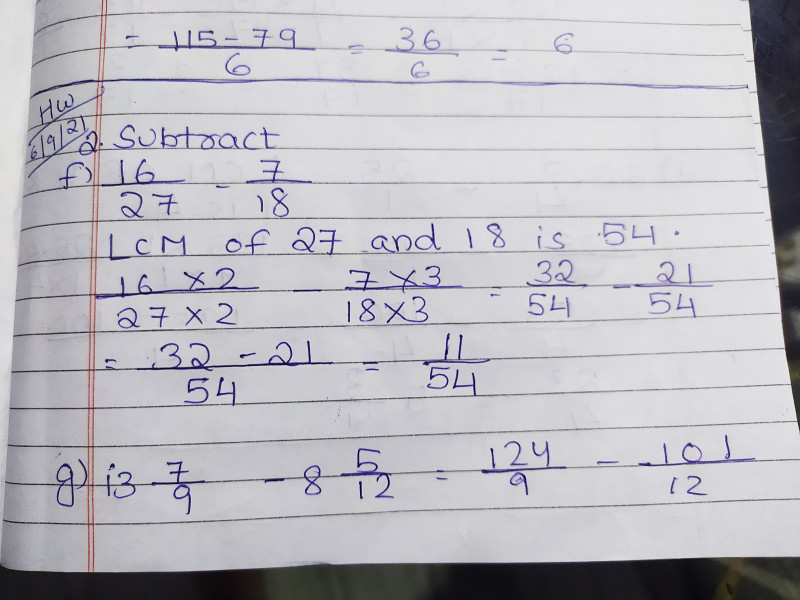 = 115 - 79 / 6 = 36 / 6 = 6
HW
6/9/21
2. Subtract
f) 16/27 - 7/18
LCM of 27 and 18 is 54.
16 × 2 / 27 × 2 - 7 × 3 / 18 × 3 = 32/54 - 21/54
= 32 - 21 / 54 = 11/54
g) 13 7/9 - 8 5/12 = 124/9 - 101/12